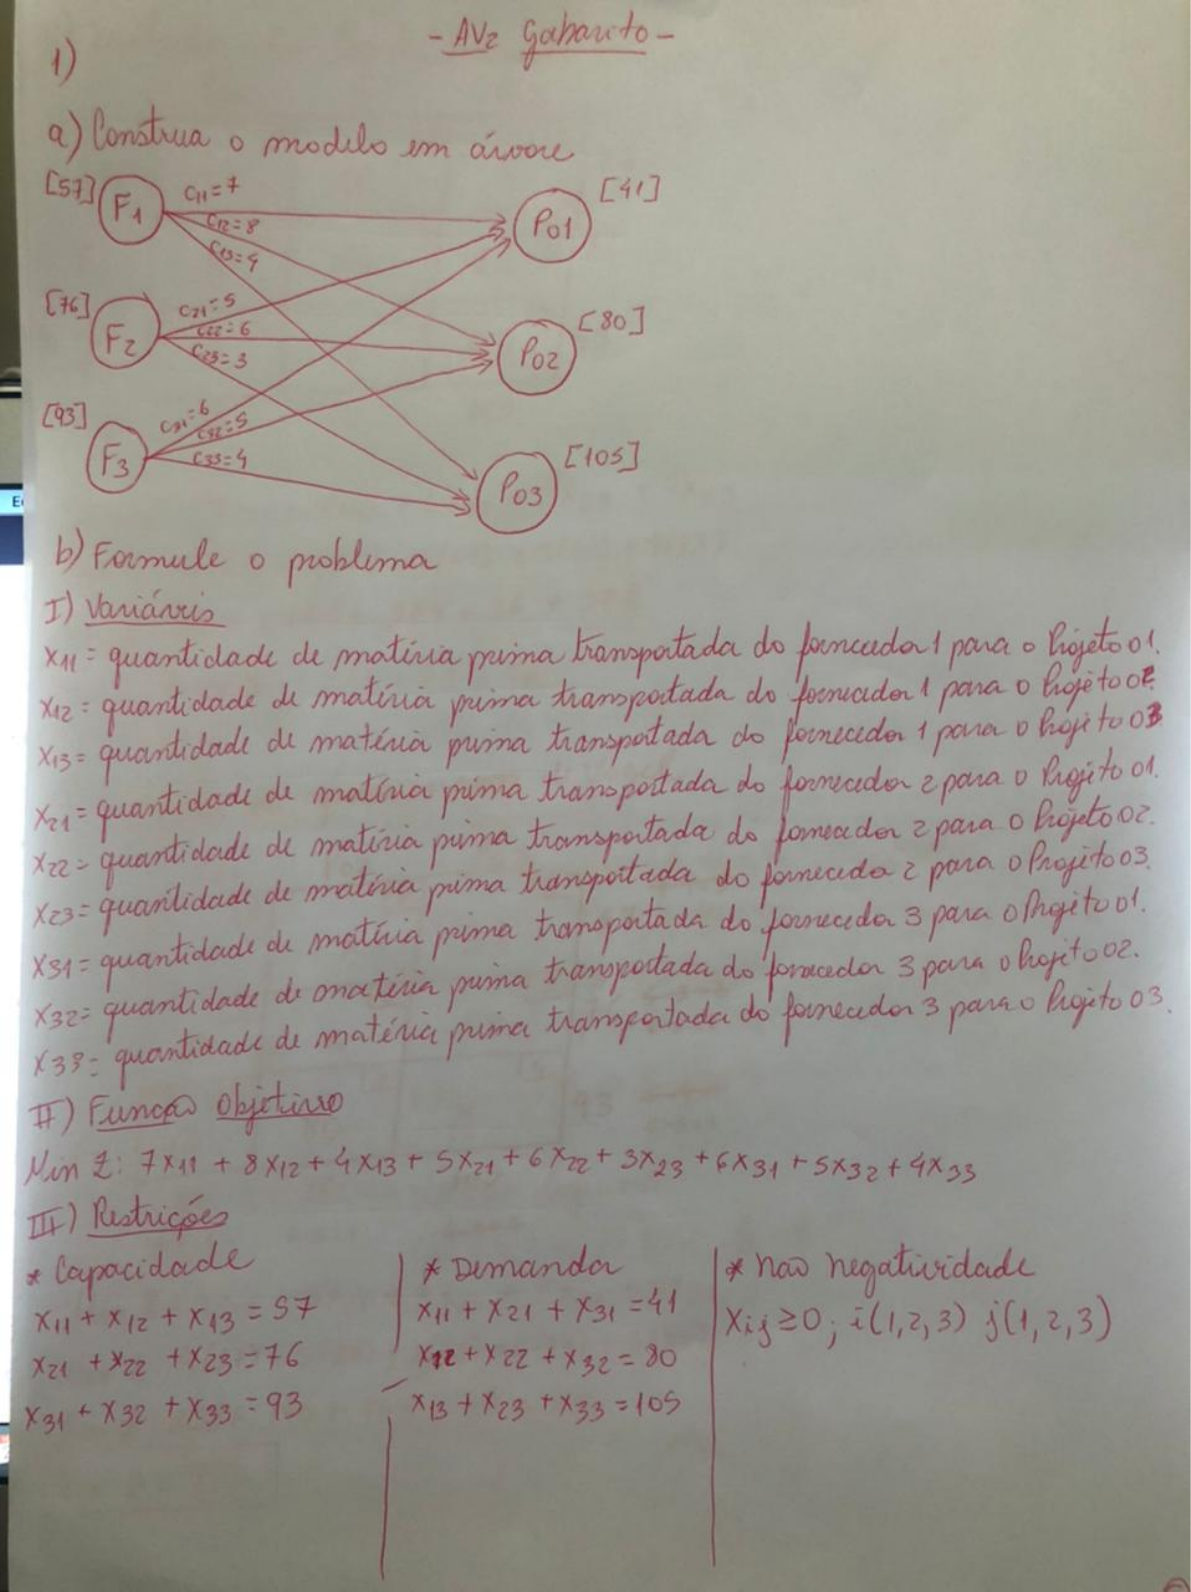 - AV2 Gabarito -
1)
a) Construa o modelo em árvore
[57] F1 C11=7 P01 [41]
C12=8
C13=4
[76] F2 C21=5 P02 [80]
C22=6
C23=3
[93] F3 C31=6 P03 [105]
C32=5
C33=4
b) Formule o problema
I) Variáveis
X11 = quantidade de matéria prima transportada do fornecedor 1 para o Projeto 01.
X12 = quantidade de matéria prima transportada do fornecedor 1 para o Projeto 02.
X13 = quantidade de matéria prima transportada do fornecedor 1 para o Projeto 03
X21 = quantidade de matéria prima transportada do fornecedor 2 para o Projeto 01.
X22 = quantidade de matéria prima transportada do fornecedor 2 para o Projeto 02.
X23 = quantidade de matéria prima transportada do fornecedor 2 para o Projeto 03.
X31 = quantidade de matéria prima transportada do fornecedor 3 para o Projeto 01.
X32 = quantidade de matéria prima transportada do fornecedor 3 para o Projeto 02.
X33 = quantidade de matéria prima transportada do fornecedor 3 para o Projeto 03.
II) Função Objetivo
Min Z: 7X11 + 8X12 + 4X13 + 5X21 + 6X22 + 3X23 + 6X31 + 5X32 + 4X33
III) Restrições
* Capacidade
X11 + X12 + X13 = 57
X21 + X22 + X23 = 76
X31 + X32 + X33 = 93
* Demanda
X11 + X21 + X31 = 41
X12 + X22 + X32 = 80
X13 + X23 + X33 = 105
* Não negatividade
Xij ≥ 0; i(1,2,3) j(1,2,3)